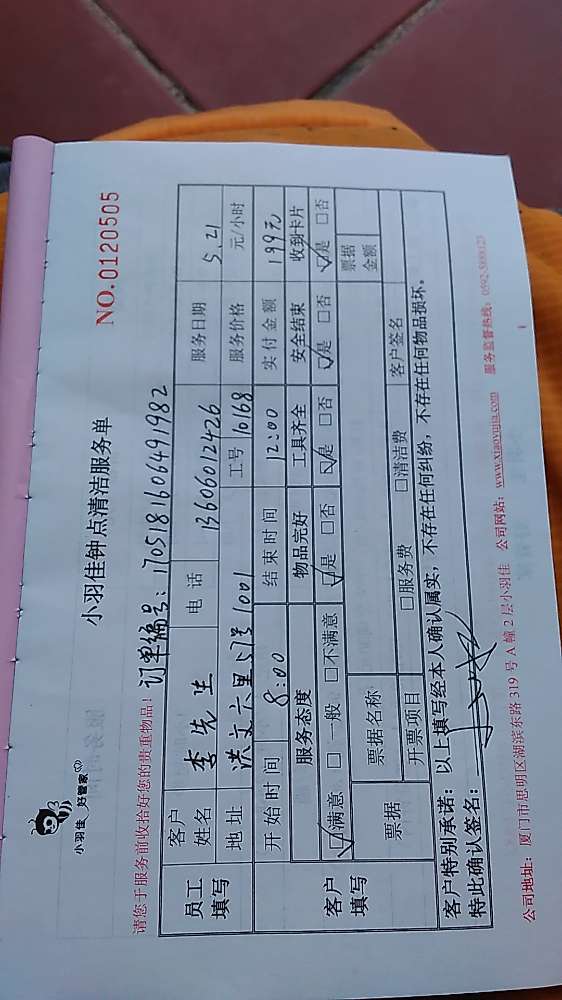 小羽佳 好管家
小羽佳钟点清洁服务单
NO.0120505
请您于服务前收拾好您的贵重物品!
订单编号:1705181606491982
员工填写
客户姓名 李先生 电话 13606012426 服务日期 5.21
地址 洪文六里 号1001 工号 10168 服务价格 元/小时
客户填写
开始时间 8:00 结束时间 12:00 实付金额 199元
服务态度 物品完好 工具齐全 安全结束 收到卡片
☑满意 □一般 □不满意 ☑是 □否 ☑是 □否 ☑是 □否 ☑是 □否
票据 票据名称 票据金额
开票项目 □服务费 □清洁费 客户签名
客户特别承诺:以上填写经本人确认属实,不存在任何纠纷,不存在任何物品损坏。
特此确认签名:
公司地址:厦门市思明区湖滨东路319号A幢2层小羽佳 公司网站:www.xiaoyujia.com 服务监督热线:0592-5888123